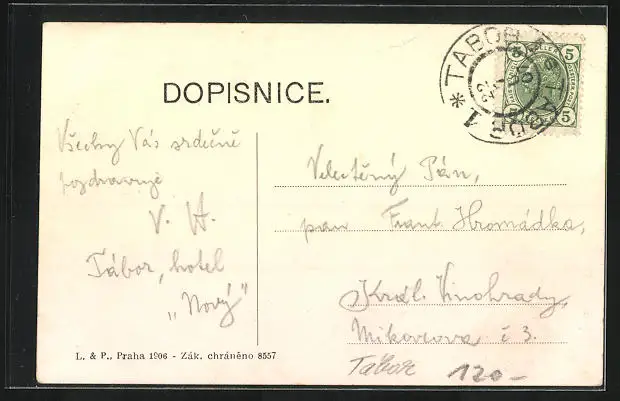 DOPISNICE.
TABOR
TABOR 1
5 HELLER 5
5 5
Všechny Vás srdečně
pozdravuje
V. H.
Tábor, hotel
„Nový"
Velectěný Pán,
pan Frant. Hromádka,
Král. Vinohrady,
Mikovcova č 3.
L. & P., Praha 1906 - Zák. chráněno 8557
Tábor 120-